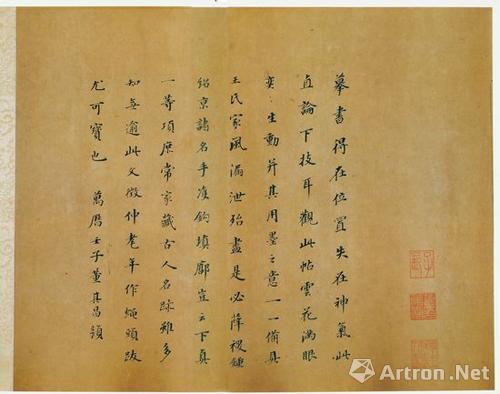 摹書得在位置失在神氣此
直論下技耳觀此帖雲花滿眼
奕〻生動并其用墨之意一一備具
王氏家風漏泄殆盡是必薛稷鍾
紹京諸名手雙鉤填廓豈云下真
一等項庶常家藏古人名跡雖多
知無逾此文徵仲老年作蠅頭跋
尤可寶也 萬曆壬子董其昌題
Artron.Net